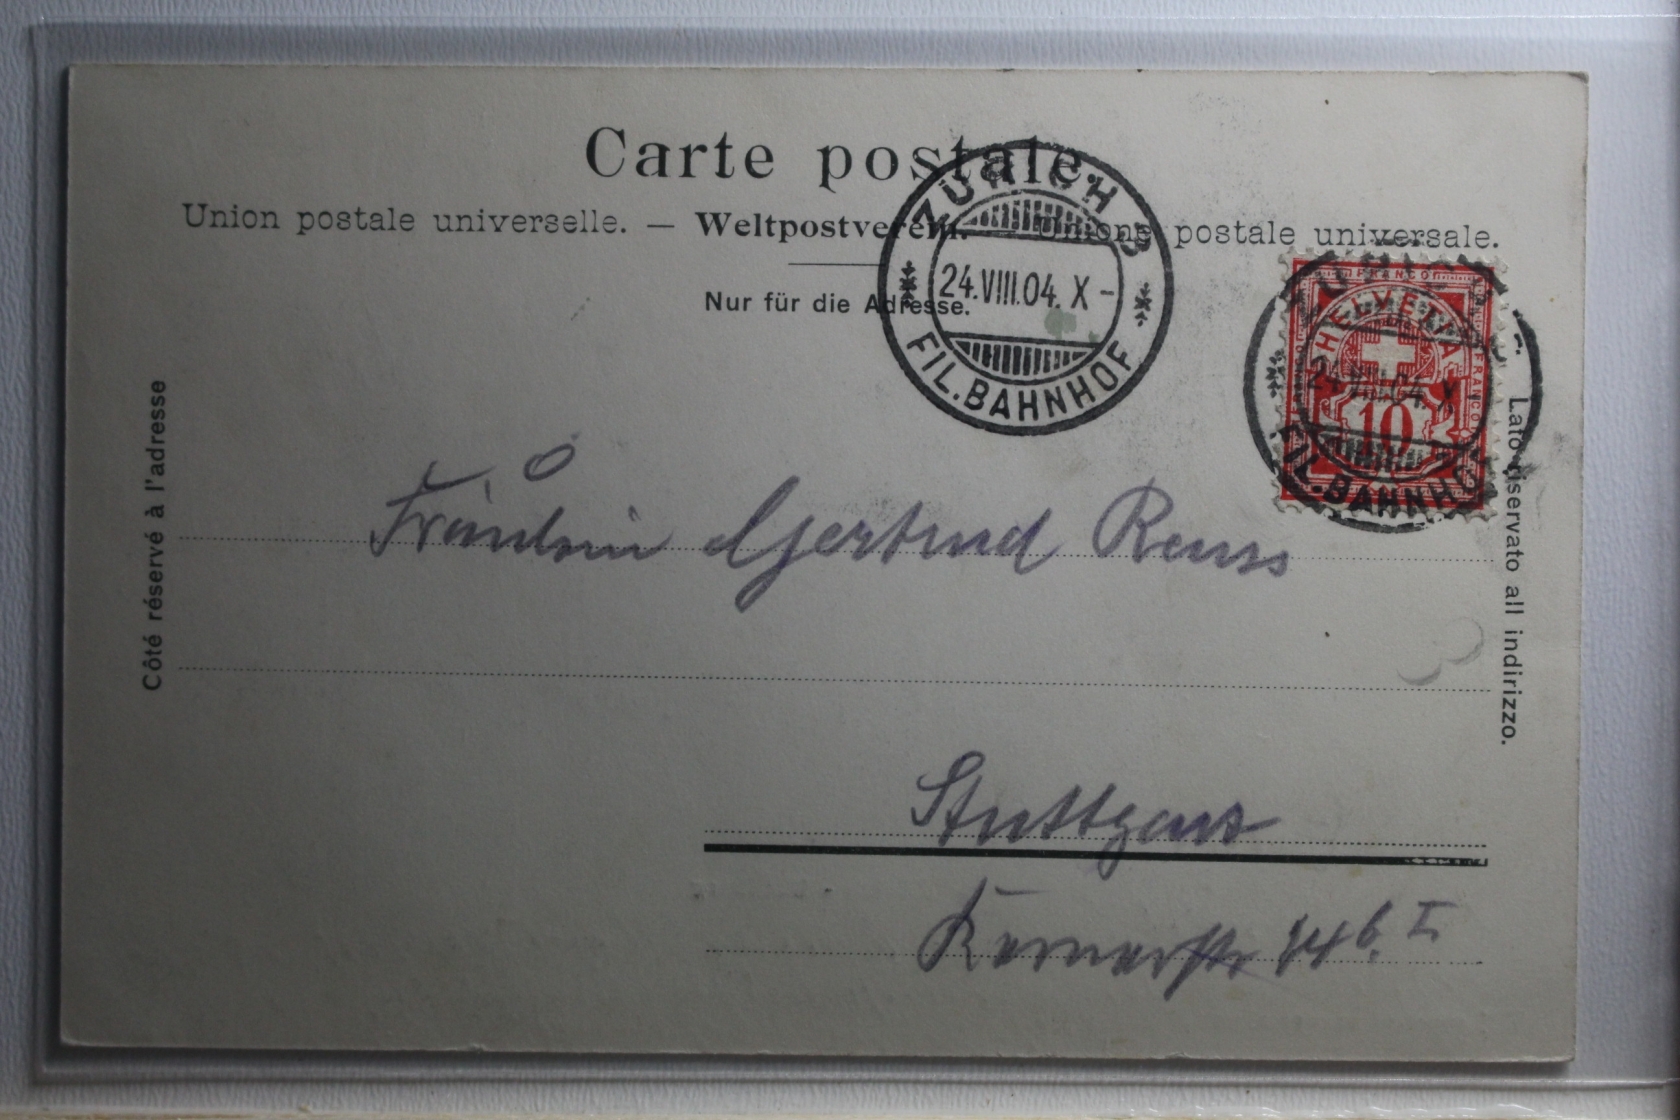 Carte postale.
Union postale universelle. — Weltpostverein. — Unione postale universale.
Nur für die Adresse.
ZÜRICH 3
24.VIII.04. X –
FIL. BAHNHOF
ZÜRICH
24.VIII.04. X
FIL. BAHNHOF
FRANCO
HELVETIA
FRANCO
10
Côté réservé à l'adresse
Lato riservato all indirizzo.
Fräulein Gertrud Reuss
Stuttgart
Kernerstr 44 b. I